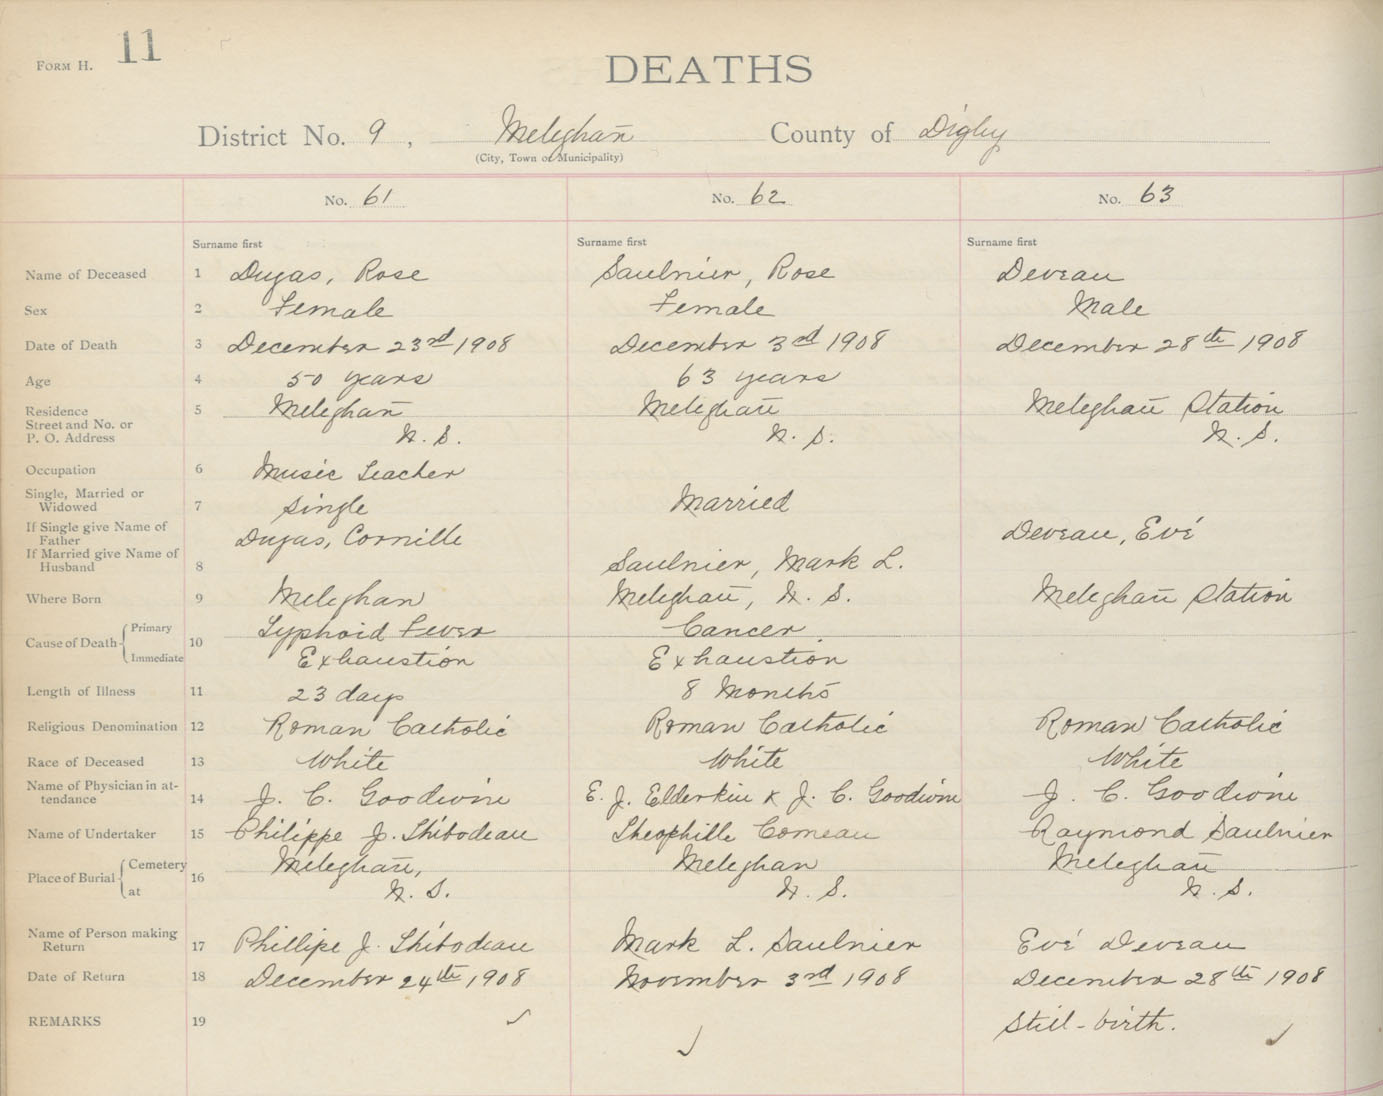 FORM H. 11
DEATHS
District No. 9, Meteghan County of Digby
(City, Town or Municipality)
No. 61 No. 62 No. 63
Surname first Surname first Surname first
Name of Deceased 1 Dugas, Rose Saulnier, Rose Deveau
Sex 2 Female Female Male
Date of Death 3 December 23rd 1908 December 3rd 1908 December 28th 1908
Age 4 50 years 63 years
Residence 5 Meteghan Meteghan Meteghan Station
Street and No. or
P. O. Address N. S. N. S. N. S.
Occupation 6 Music Teacher
Single, Married or
Widowed 7 Single Married
If Single give Name of
Father Dugas, Cornille Deveau, Evé
If Married give Name of
Husband 8 Saulnier, Mark L.
Where Born 9 Meteghan Meteghan, N. S. Meteghan Station
Cause of Death Primary 10 Typhoid Fever Cancer
Immediate Exhaustion Exhaustion
Length of Illness 11 23 days 8 Months
Religious Denomination 12 Roman Catholic Roman Catholic Roman Catholic
Race of Deceased 13 White White White
Name of Physician in at-
tendance 14 J. C. Goodwin E. J. Elderkin & J. C. Goodwin J. C. Goodwin
Name of Undertaker 15 Philippe J. Thibodeau Theophille Comeau Raymond Saulnier
Place of Burial Cemetery 16 Meteghan, Meteghan Meteghan
at N. S. N. S. N. S.
Name of Person making
Return 17 Phillipe J. Thibodeau Mark L. Saulnier Evé Deveau
Date of Return 18 December 24th 1908 November 3rd 1908 December 28th 1908
REMARKS 19 Still-birth.